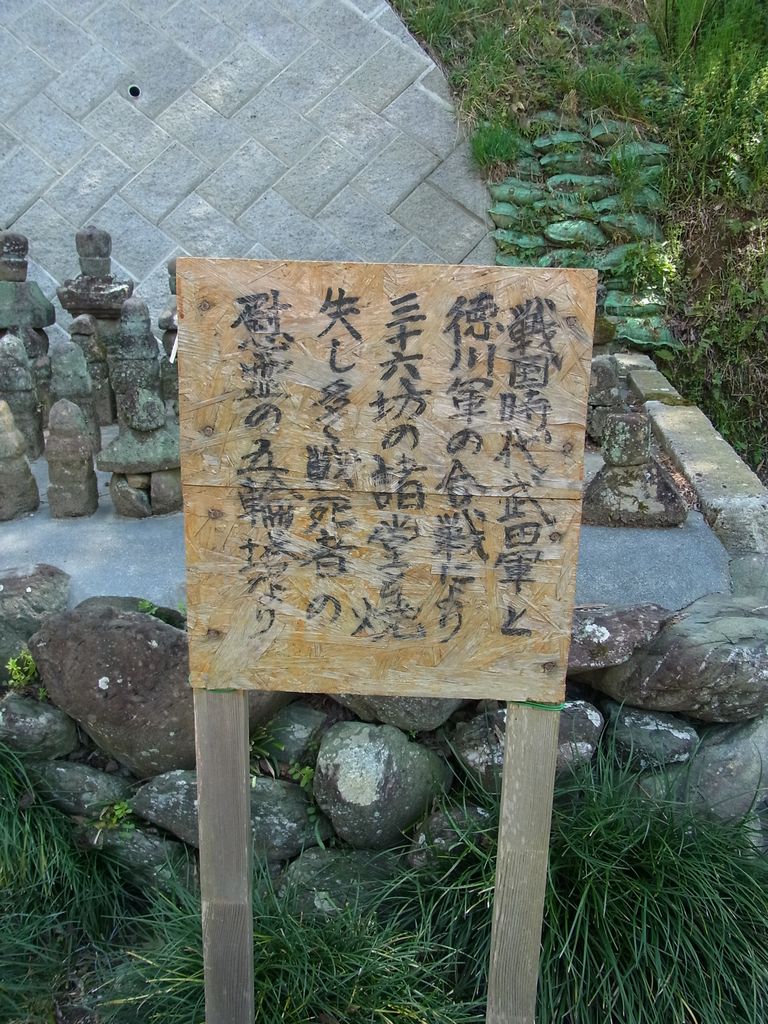 戦国時代、武田軍と
徳川軍の合戦により
三十六坊の諸堂を焼
失し多く戦死者の
慰霊の五輪塔なり